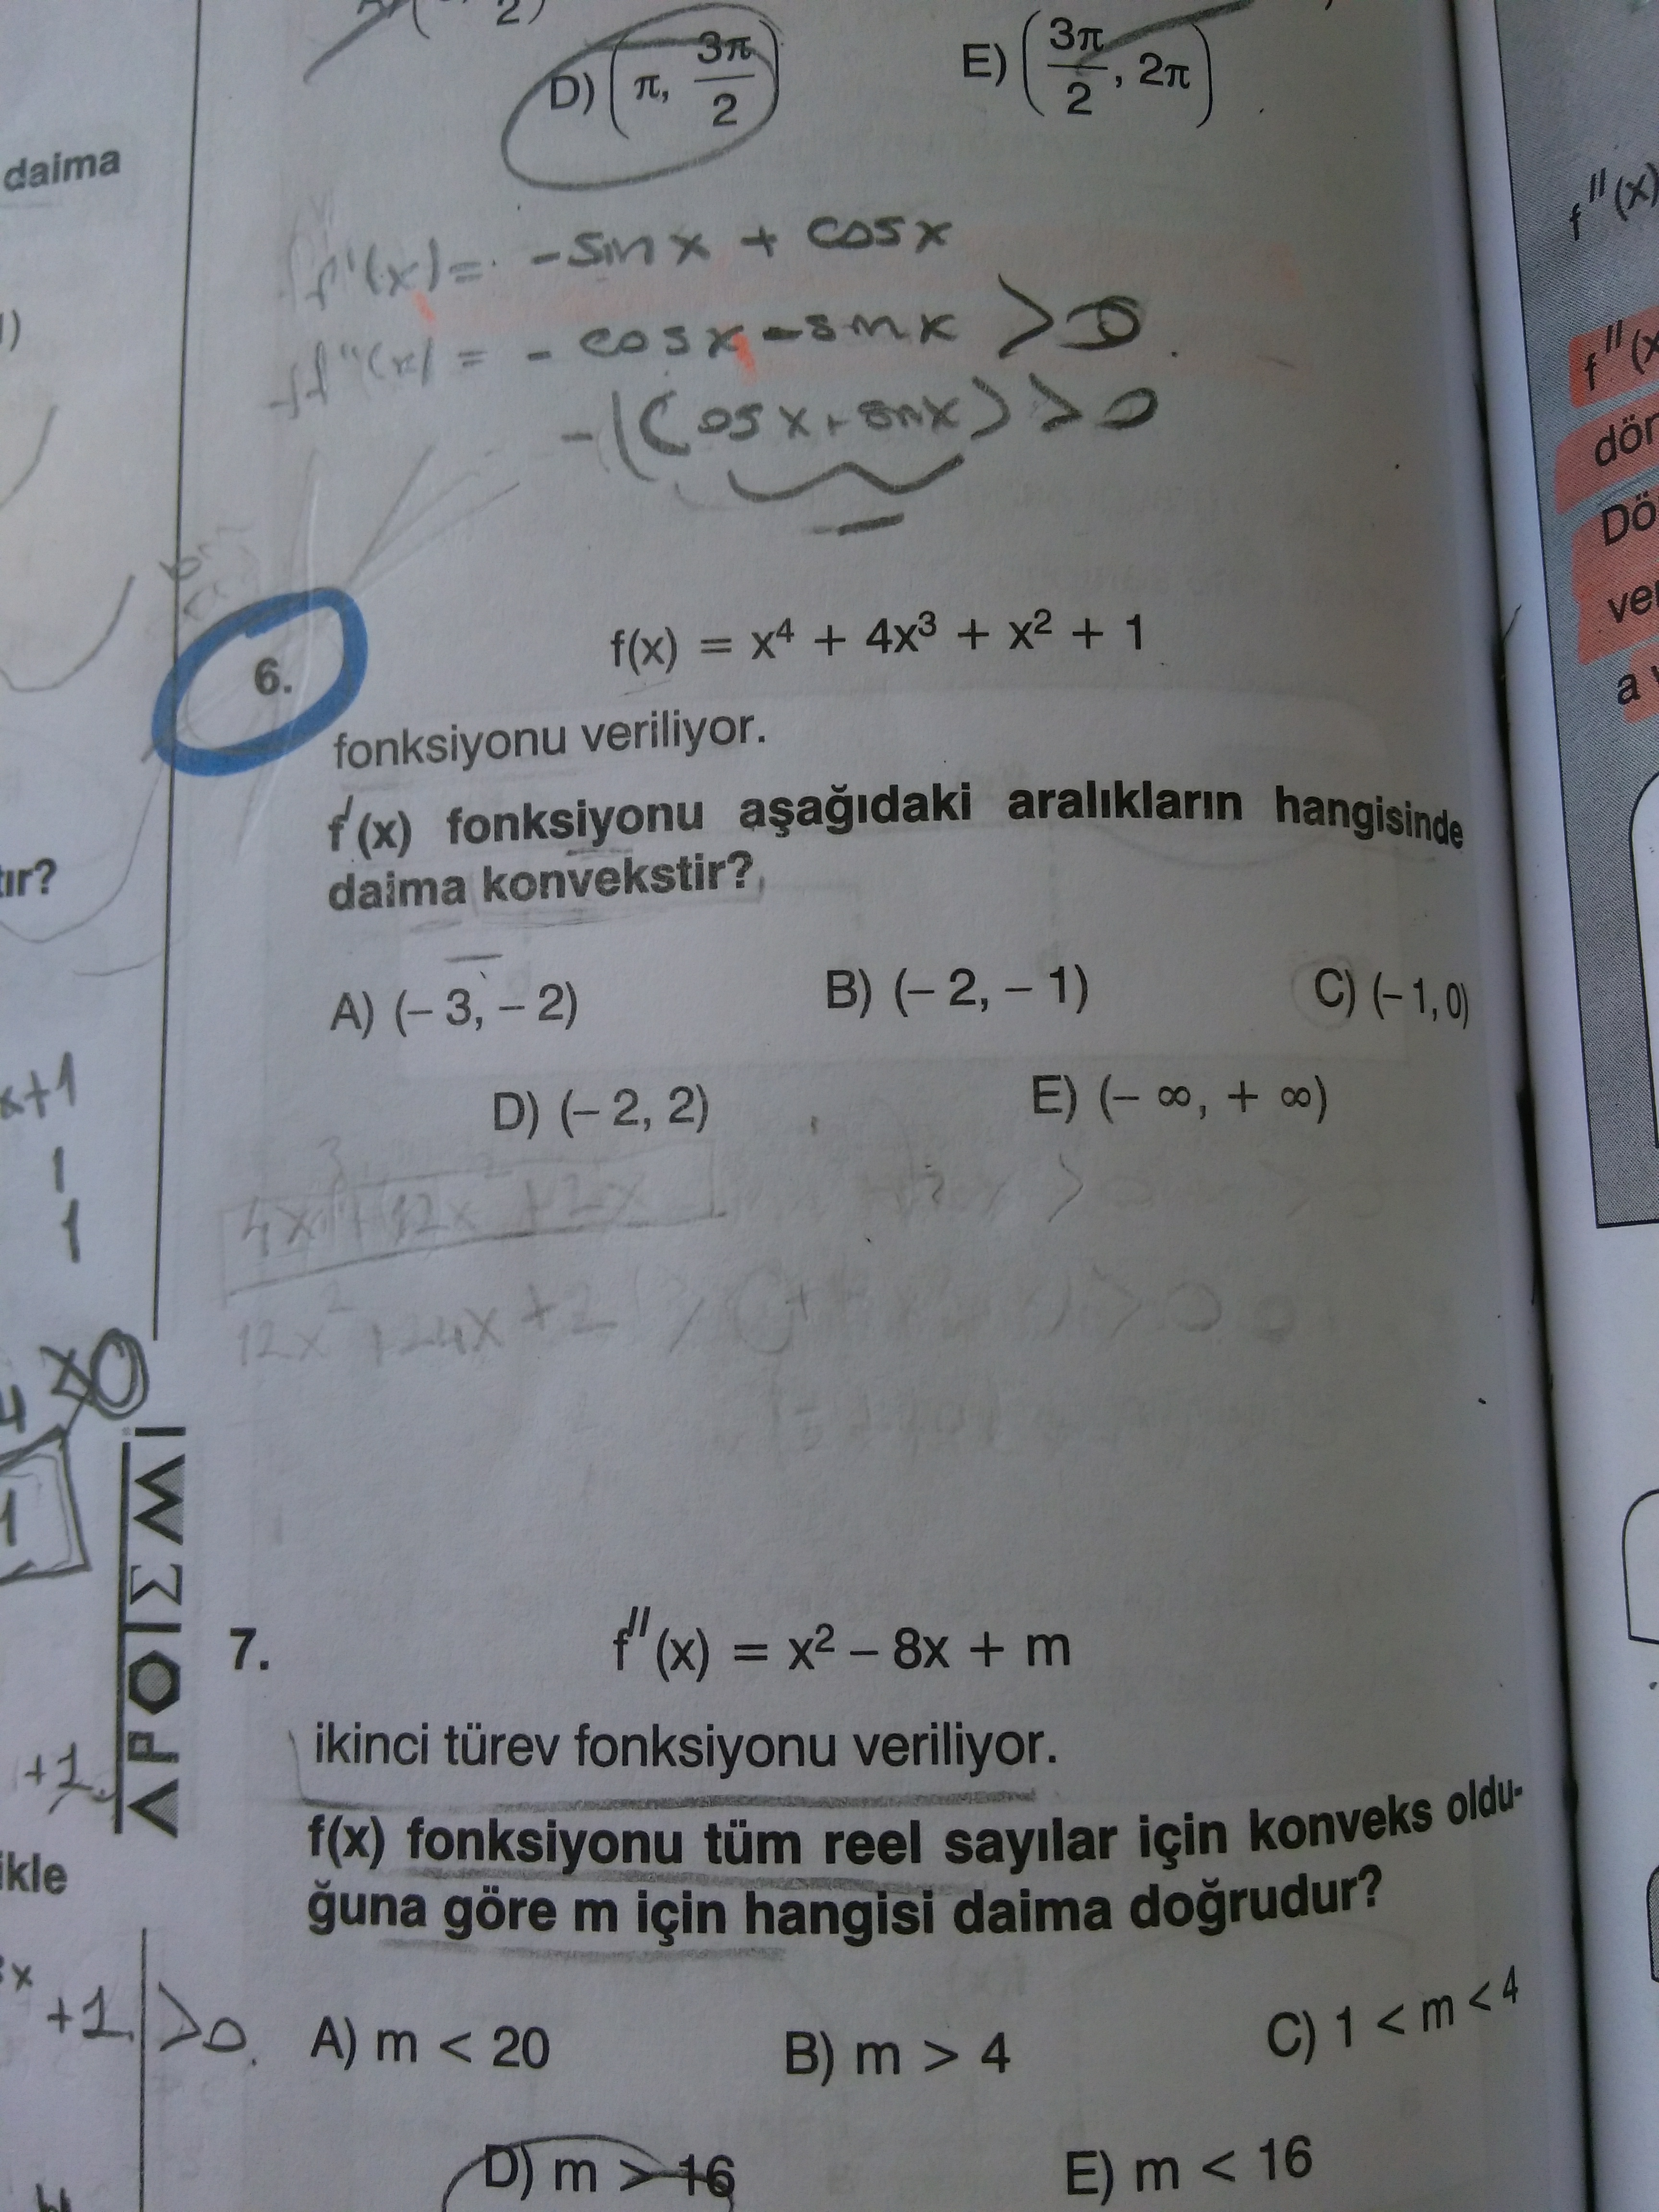 2)
D) (π, 3π/2)
E) (3π/2, 2π)
daima
f'(x) = -sinx + cosx
f''(x) = -cosx - sinx > 0
-(cosx + sinx) > 0
6.
f(x) = x⁴ + 4x³ + x² + 1
fonksiyonu veriliyor.
f'(x) fonksiyonu aşağıdaki aralıkların hangisinde
daima konvekstir?
A) (– 3, – 2)
B) (– 2, – 1)
C) (– 1, 0)
D) (– 2, 2)
E) (– ∞, + ∞)
4x³ + 12x² + 2x
12x² + 24x + 2
7.
f''(x) = x² – 8x + m
ikinci türev fonksiyonu veriliyor.
f(x) fonksiyonu tüm reel sayılar için konveks oldu-
ğuna göre m için hangisi daima doğrudur?
A) m < 20
B) m > 4
C) 1 < m < 4
D) m > 16
E) m < 16
tır?
x+1
1
1
APOIEMİ
+1
ikle
+1 > 0
f''(x)
f''(x
dör
Dö
ver
a